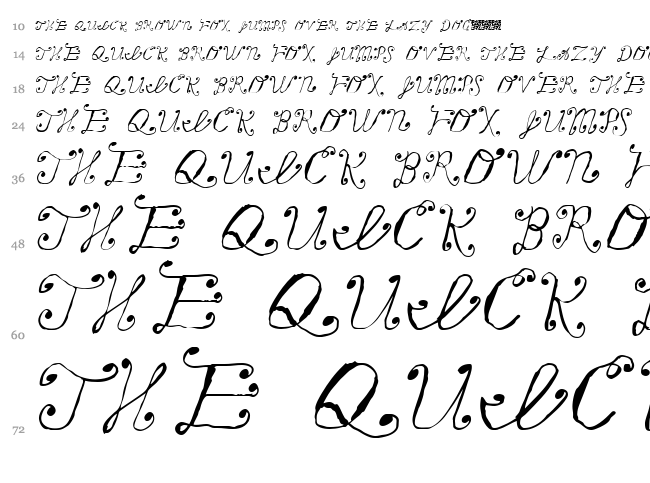 10 THE QUICK BROWN FOX JUMPS OVER THE LAZY DOG
14 THE QUICK BROWN FOX JUMPS OVER THE LAZY DO
18 THE QUICK BROWN FOX JUMPS OVER THE
24 THE QUICK BROWN FOX JUMPS
36 THE QUICK BROWN F
48 THE QUICK BRO
60 THE QUICK
72 THE QUIC